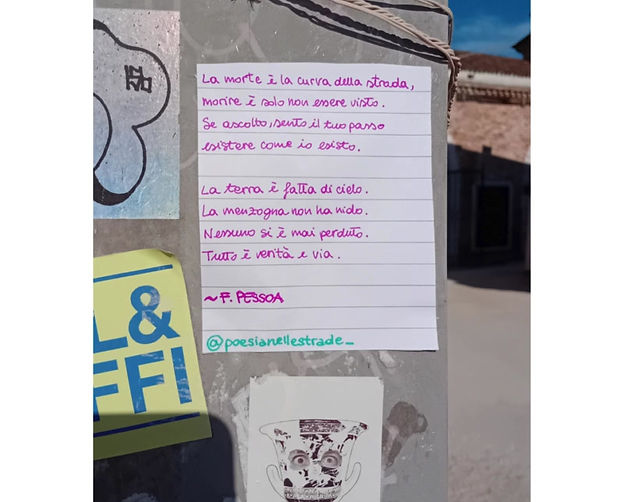 La morte è la curva della strada,
morire è solo non essere visto.
Se ascolto, sento il tuo passo
esistere come io esisto.
La terra è fatta di cielo.
La menzogna non ha nido.
Nessuno si è mai perduto.
Tutto è verità e via.
~ F. PESSOA
@poesianellestrade_
L&
FFI